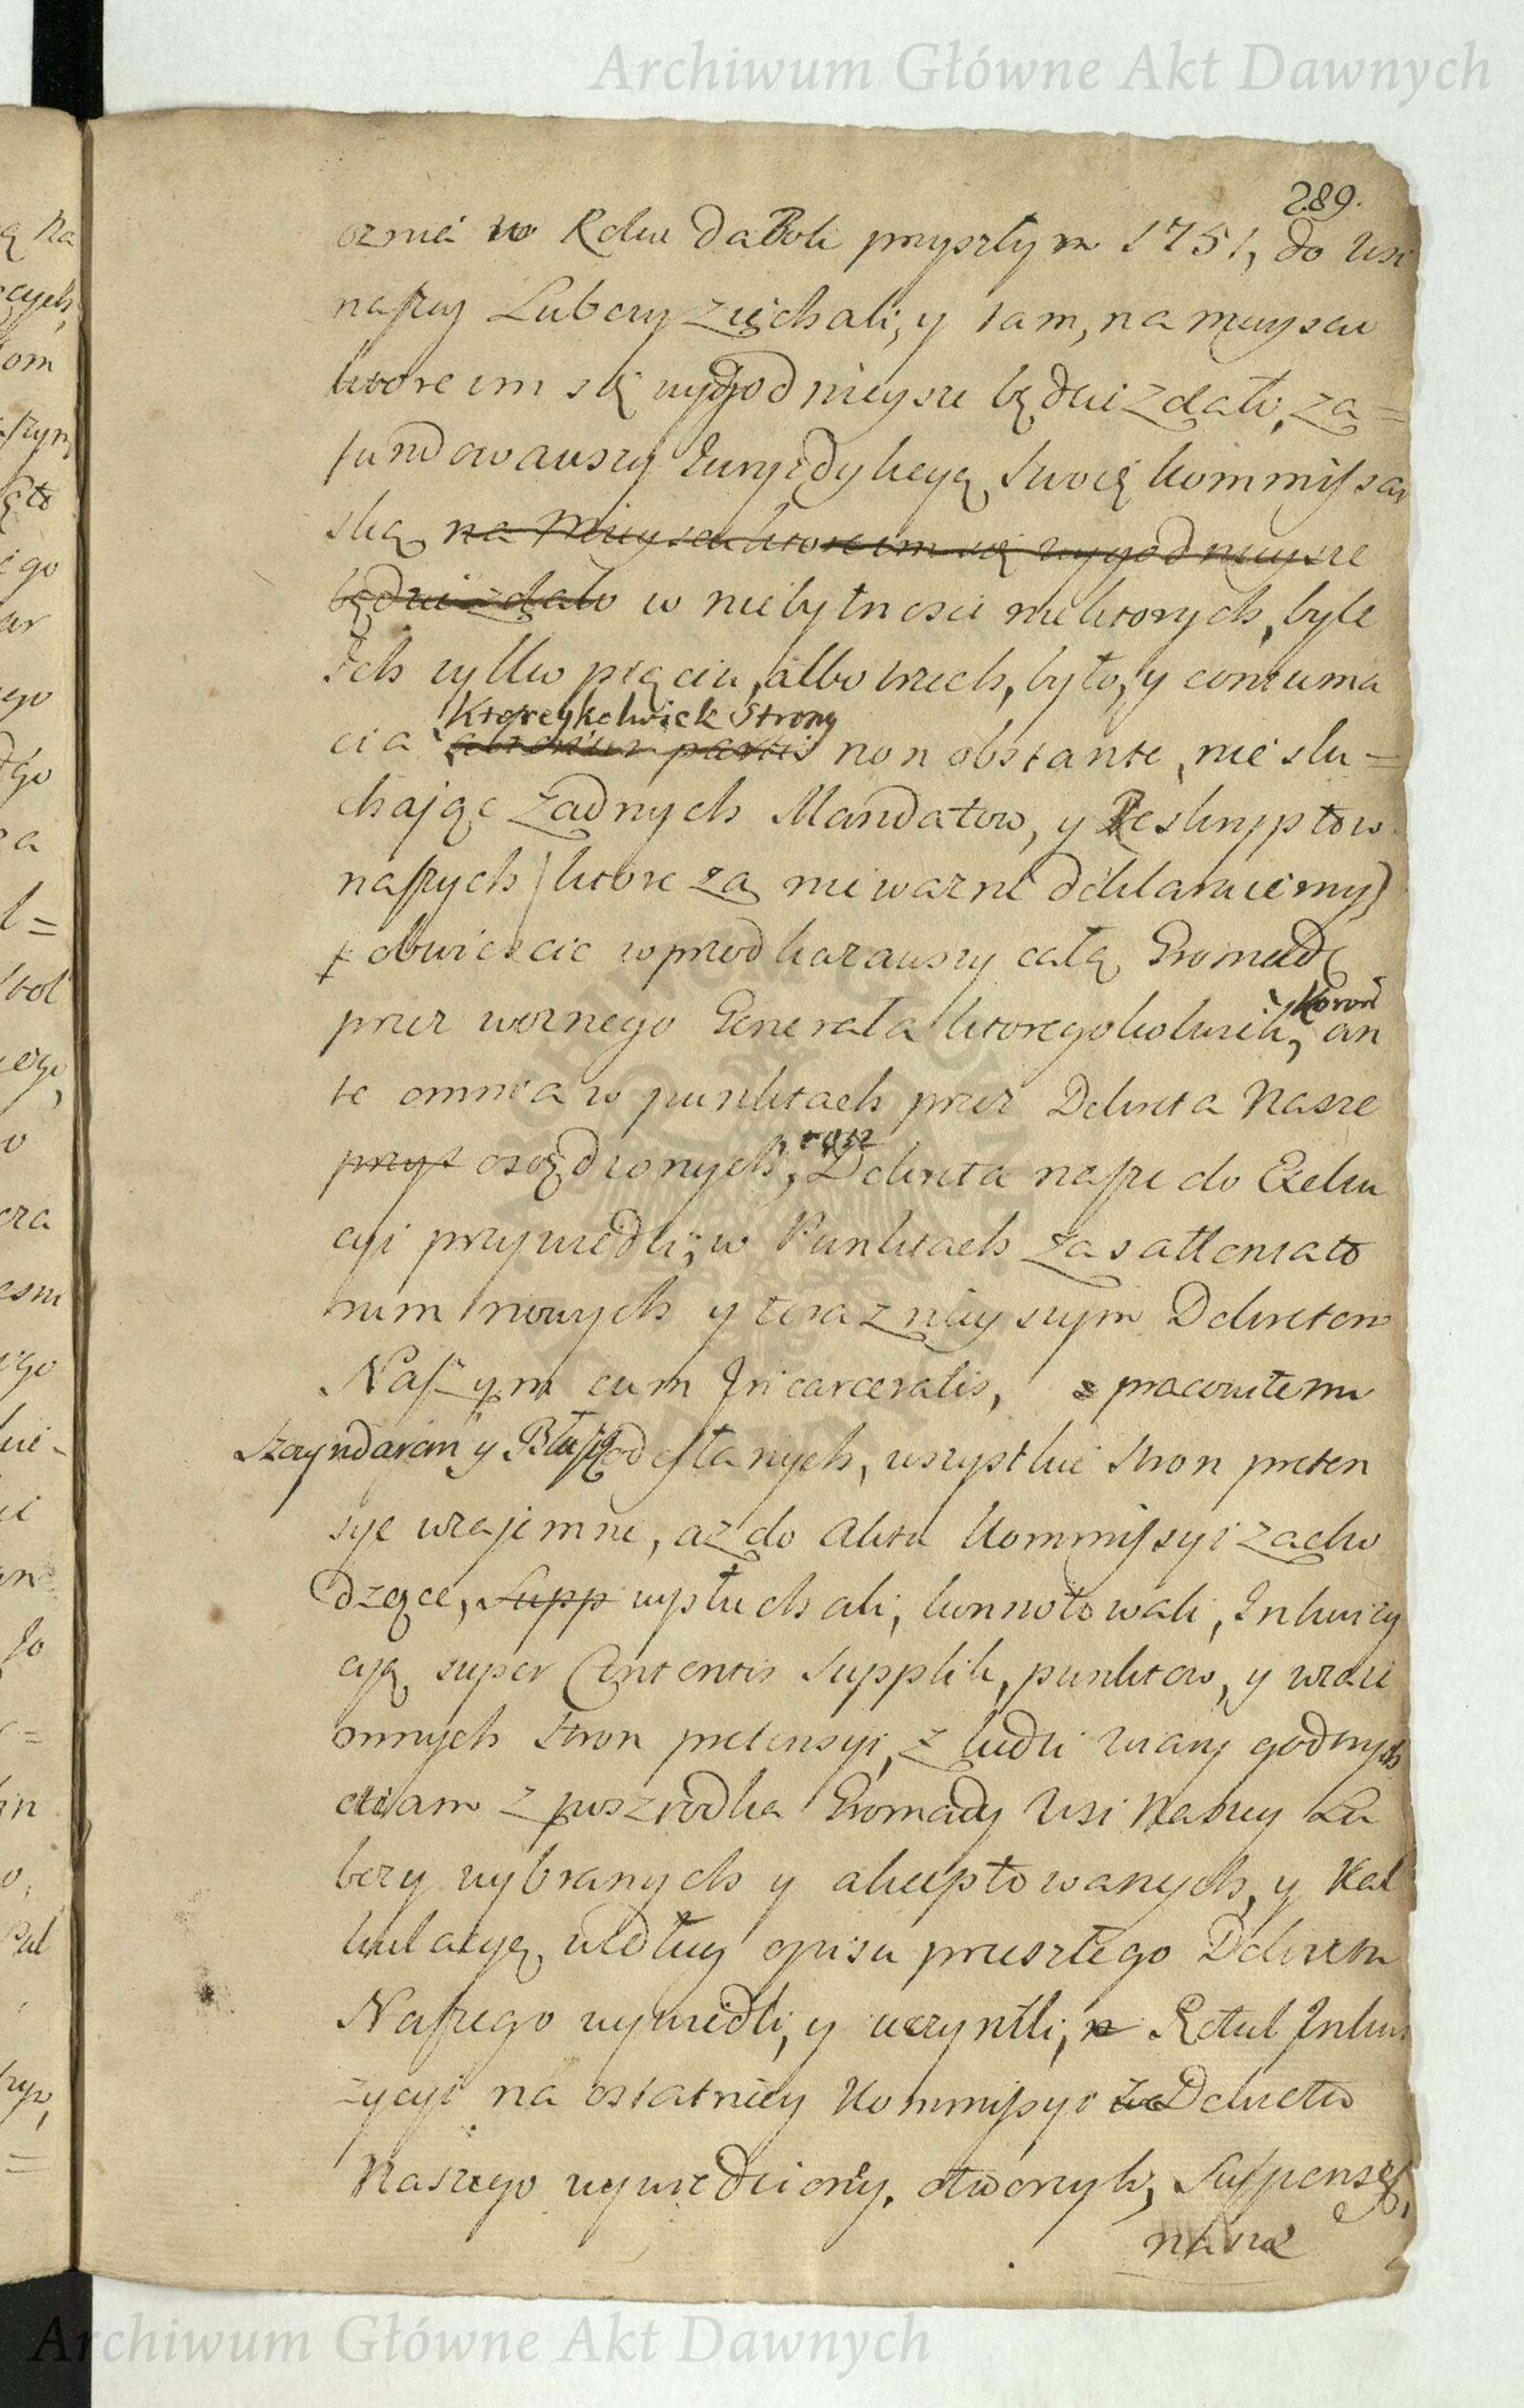 Archiwum Główne Akt Dawnych
289.
cznie w Roku da Boh przyszłym 1751, do wsi
naszey Lubczy ziechali, y tam, na mieyscu
ktore im się wygodnieysze będzie zdało, za=
fundowawszy Jurysdykcyą swoią kommissar
ską na mieyscu ktore im się wygodnieysze
będzie zdało w niebytnosci niektorych, byle
Ich tylko pięciu, albo trzech, było, y contuma
cia
Ktoreykolwiek Strony
non obstante, nie słu=
chając żadnych Mandatow, y Reskryptow
naszych (ktore za nieważne deklaruiemy)
obwiescic wprzod kazawszy całą Gromadę
przez woznego Generała ktoregokolwiek, Koron
an
te omnia w punktach przez Dekreta Nasze
przys osądzonych, oraz Dekreta nasze do Exeku
cyi przywiedli, w Punktach zas attentato
rum nowych y teraznieyszym Dekretem
Naszym cum Incarceratis, pracowitemi
Szczyndarem y Błaszą odesłanych, wszystkie stron preten
sye wzajemne, az do aktu Kommissyi zacho
dzące, Supp wysłuchali, konnotowali, Inkwizy
cyą super Contentis Supplik, punktow, y wzaie
mnych stron pretensyi, z ludzi wiary godnych
etiam z poszrodka Gromady wsi Naszey Lu
bczy wybranych y akceptowanych, y Kal
kulacyą według opisu przeszłego Dekretu
Naszego wywiedli, y uczynili, Rotul Inkwi
zycyi na ostatniey Kommissyi z Dekretu
Naszego wywiedzioney, otworzyli, Suspensę,
nasze
Archiwum Główne Akt Dawnych